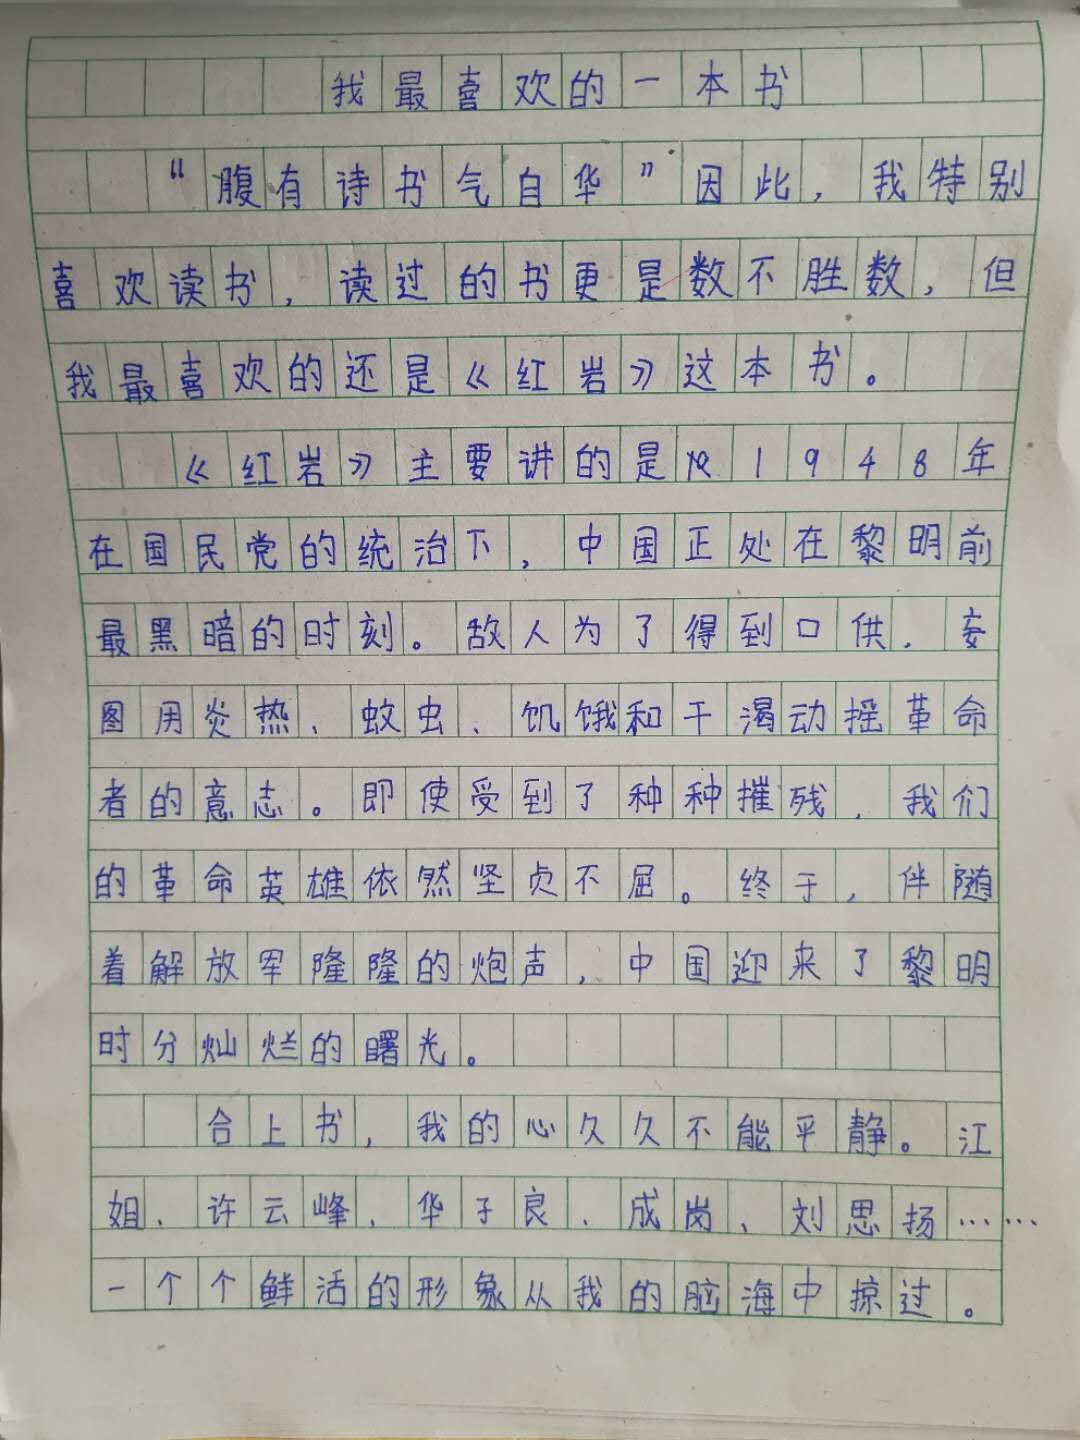 我最喜欢的一本书
“腹有诗书气自华”因此，我特别
喜欢读书，读过的书更是数不胜数，但
我最喜欢的还是《红岩》这本书。
《红岩》主要讲的是从1948年
在国民党的统治下，中国正处在黎明前
最黑暗的时刻。敌人为了得到口供，妄
图用炎热、蚊虫、饥饿和干渴动摇革命
者的意志。即使受到了种种摧残，我们
的革命英雄依然坚贞不屈。终于，伴随
着解放军隆隆的炮声，中国迎来了黎明
时分灿烂的曙光。
合上书，我的心久久不能平静。江
姐、许云峰、华子良、成岗、刘思扬……
一个个鲜活的形象从我的脑海中掠过。